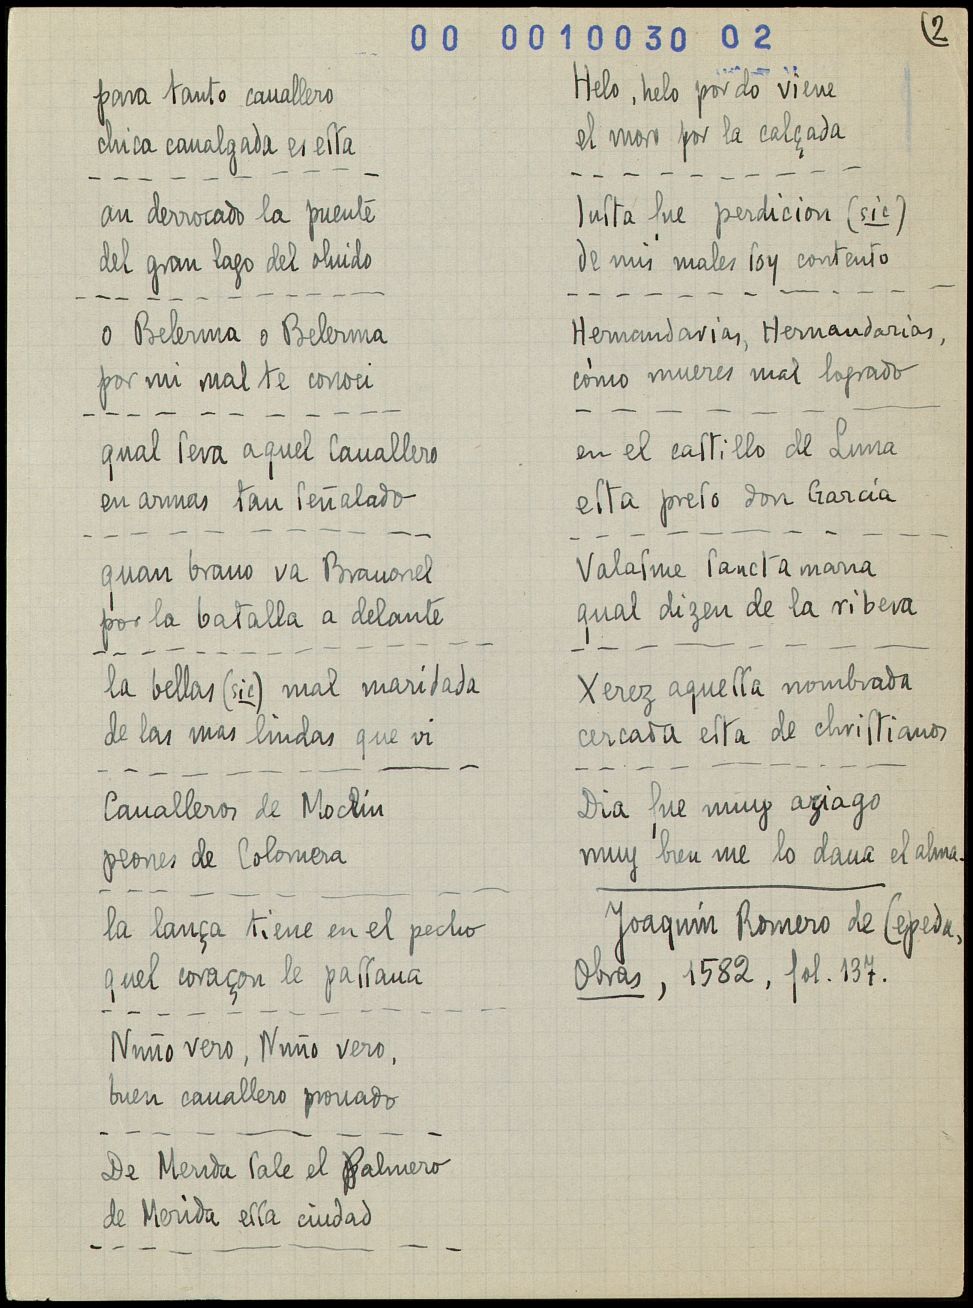 00 0010030 02
(2
para tanto cauallero
chica caualgada es eſta
an derrocado la puente
del gran lago del oluido
o Belerma o Belerma
por mi mal te conoci
qual ſeva aquel Cauallero
en armas tan ſeñalado
quan brauo va Brauonel
por la batalla a delante
la bellas (sic) mal maridada
de las mas lindas que vi
Caualleros de Moclin
peones de Colomera
la lança tiene en el pecho
quel coraçon le paſſaua
Nuño vero, Nuño vero,
buen cauallero prouado
De Merida ſale el Palmero
de Merida eſſa ciudad
Helo, helo por do viene
el moro por la calçada
Iuſta fue perdicion (sic)
de mis males ſoy contento
Hernandarias, Hernandarias,
cómo mueres mal logrado
en el caſtillo de Luna
eſta preſo don García
Valaſme ſancta maria
qual dizen de la ribera
Xerez aqueſſa nombrada
cercada eſta de chriſtianos
Dia fue muy aziago
muy bien me lo daua el alma.
Joaquín Romero de Cepeda,
Obras, 1582, fol. 137.